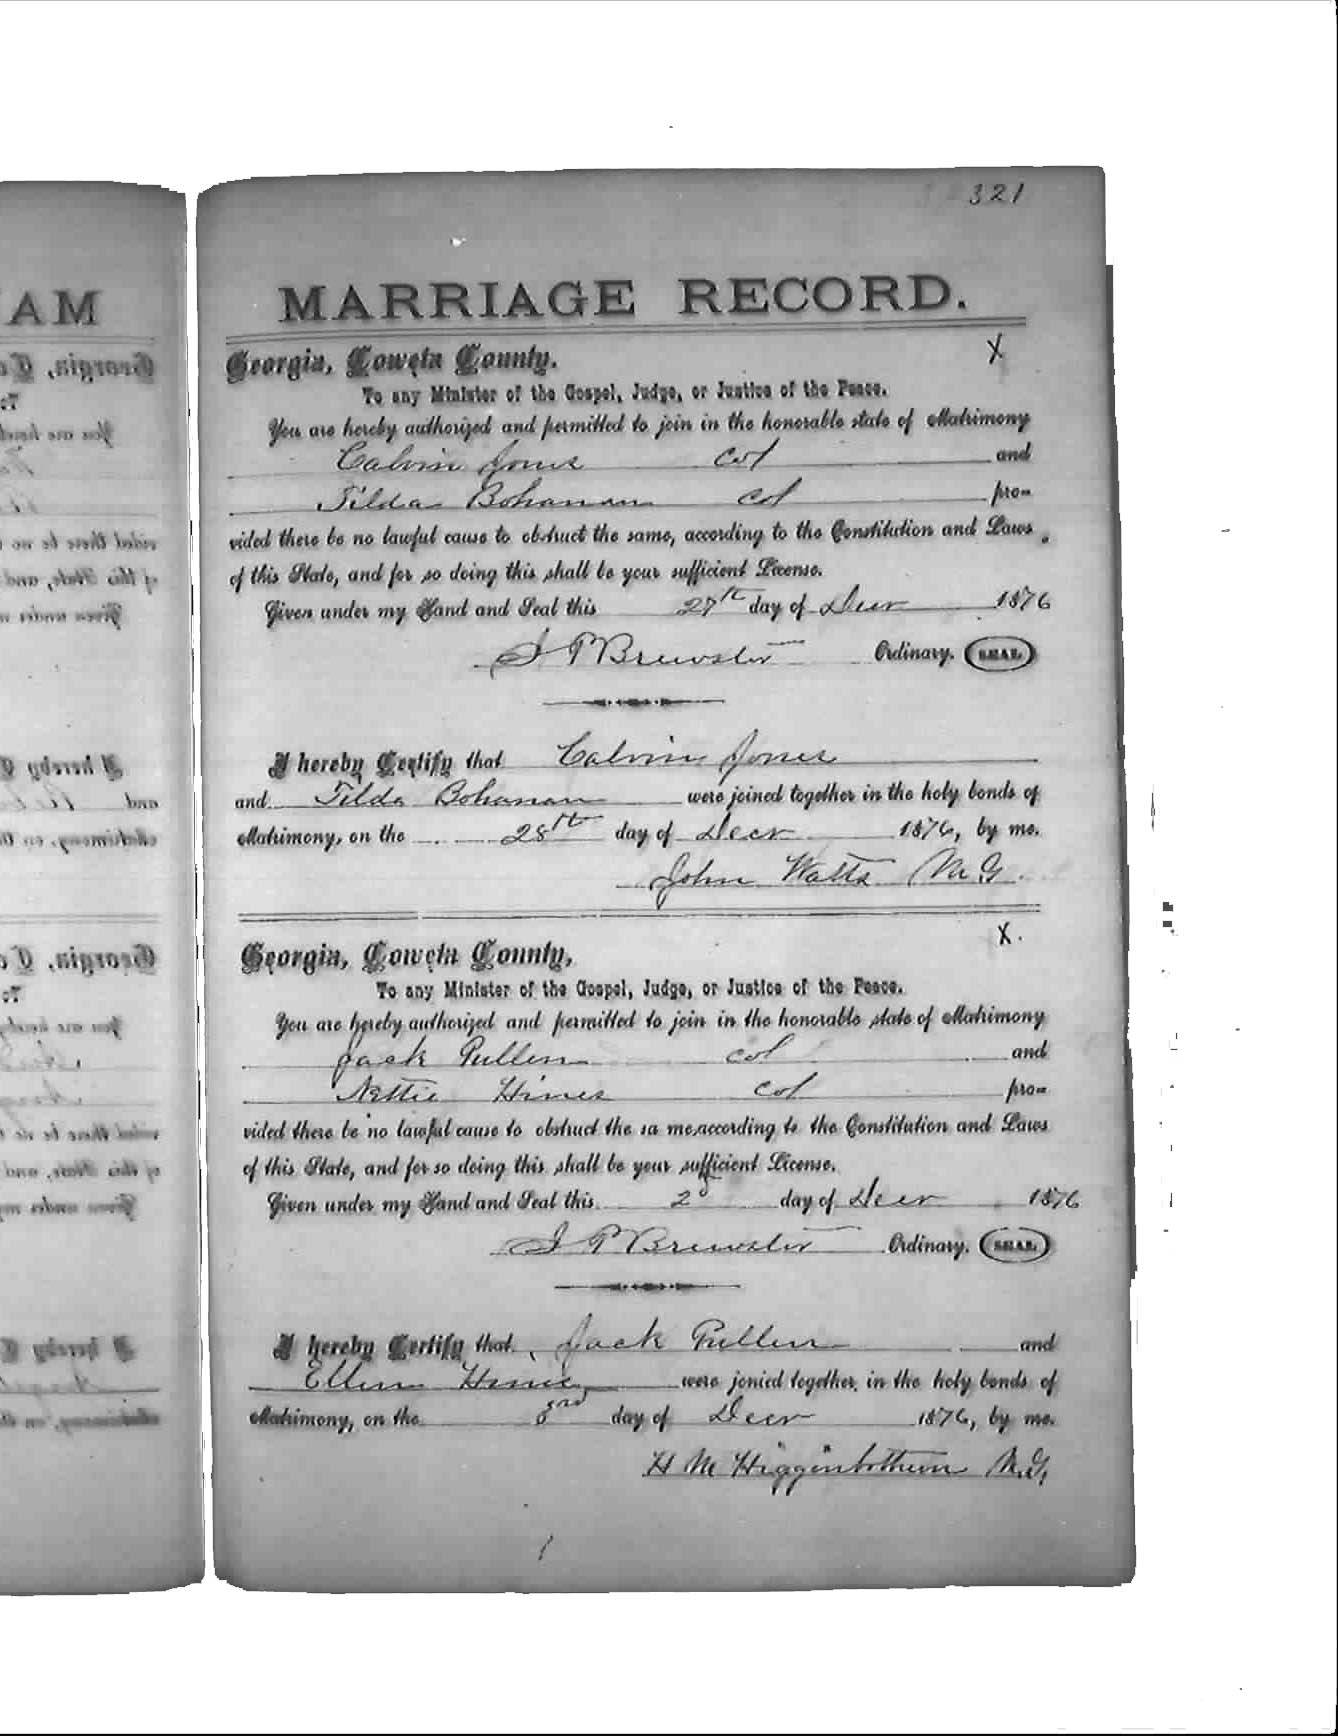 321
MARRIAGE RECORD.
X
Georgia, Coweta County.
To any Minister of the Gospel, Judge, or Justice of the Peace.
You are hereby authorized and permitted to join in the honorable state of Matrimony
Calvin Jones col and
Tilda Bohanan col pro-
vided there be no lawful cause to obstruct the same, according to the Constitution and Laws
of this State, and for so doing this shall be your sufficient License.
Given under my Hand and Seal this 27th day of Decr 1876
J P Brewster Ordinary. SEAL
I hereby Certify that Calvin Jones
and Tilda Bohanan were joined together in the holy bonds of
Matrimony, on the 28th day of Decr 1876, by me.
John Watts M.G.
X.
Georgia, Coweta County,
To any Minister of the Gospel, Judge, or Justice of the Peace.
You are hereby authorized and permitted to join in the honorable state of Matrimony
Jack Pullen col and
Nettie Hines col pro-
vided there be no lawful cause to obstruct the sa me,according to the Constitution and Laws
of this State, and for so doing this shall be your sufficient License.
Given under my Hand and Seal this 2d day of Decr 1876
J P Brewster Ordinary. SEAL
I hereby Certify that Jack Pullen and
Ellen Hines were jonied together in the holy bonds of
Matrimony, on the 3rd day of Decr 1876, by me.
H M Higginbothum M.G,